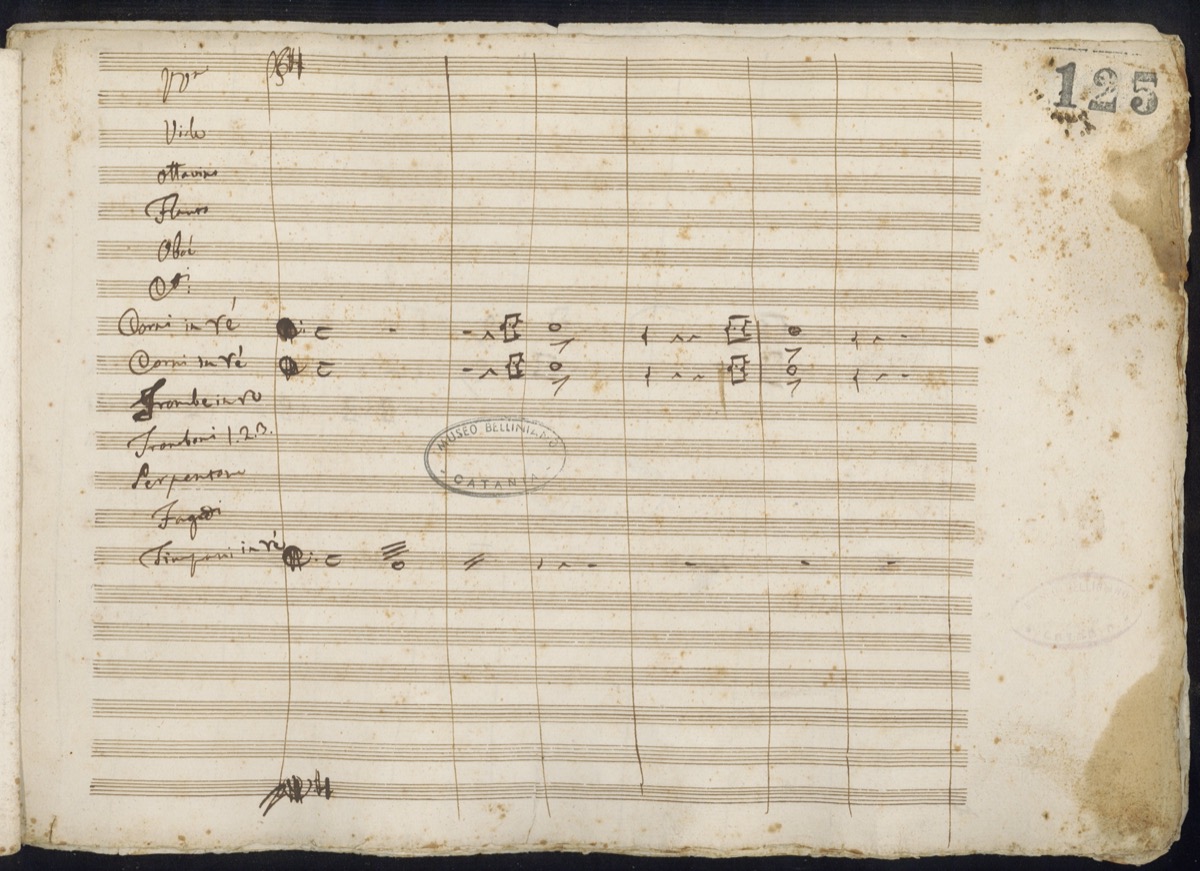 125
Viole
Ottavino
Flauto
Oboé
Corni in ré
Corni in ré
Trombe in re
Tromboni 1.2.3.
Serpentone
Fagotti
Timpani in ré
MUSEO BELLINIANO
CATANIA